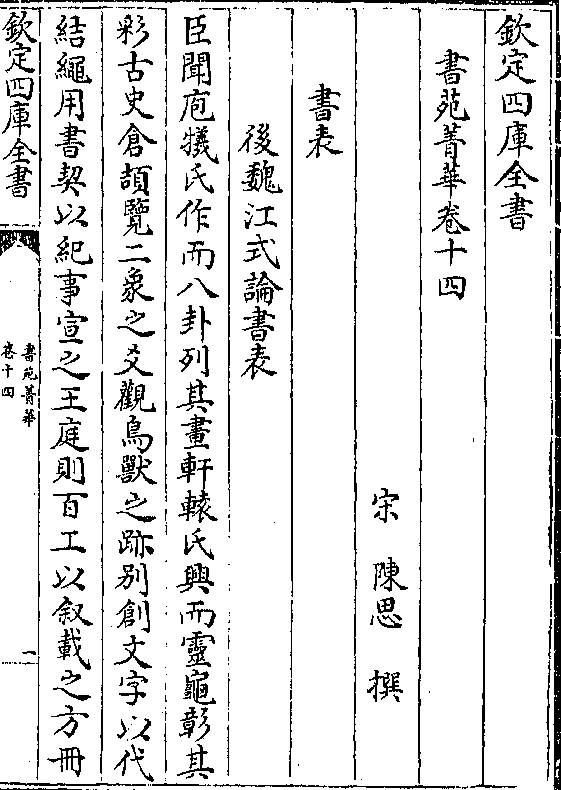 欽定四庫全書
書苑菁華卷十四
宋 陳思 撰
書表
後魏江式論書表
臣聞庖犧氏作而八卦列其畫軒轅氏興而靈龜彰其
彩古史倉頡覽二象之爻觀鳥獸之跡別創文字以代
結繩用書契以紀事宣之王庭則百工以叙載之方冊
欽定四庫全書
書苑菁華
卷十四
一